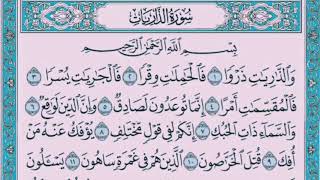 سُورَةُ الذَّارِيَاتِ
بِسْمِ اللَّهِ الرَّحْمَٰنِ الرَّحِيمِ
وَالذَّارِيَاتِ ذَرْوًا ١ فَالْحَامِلَاتِ وِقْرًا ٢ فَالْجَارِيَاتِ يُسْرًا ٣
فَالْمُقَسِّمَاتِ أَمْرًا ٤ إِنَّمَا تُوعَدُونَ لَصَادِقٌ ٥ وَإِنَّ الدِّينَ لَوَاقِعٌ ٦
وَالسَّمَاءِ ذَاتِ الْحُبُكِ ٧ إِنَّكُمْ لَفِي قَوْلٍ مُّخْتَلِفٍ ٨ يُؤْفَكُ عَنْهُ مَنْ
أُفِكَ ٩ قُتِلَ الْخَرَّاصُونَ ١٠ الَّذِينَ هُمْ فِي غَمْرَةٍ سَاهُونَ ١١ يَسْـَٔلُونَ